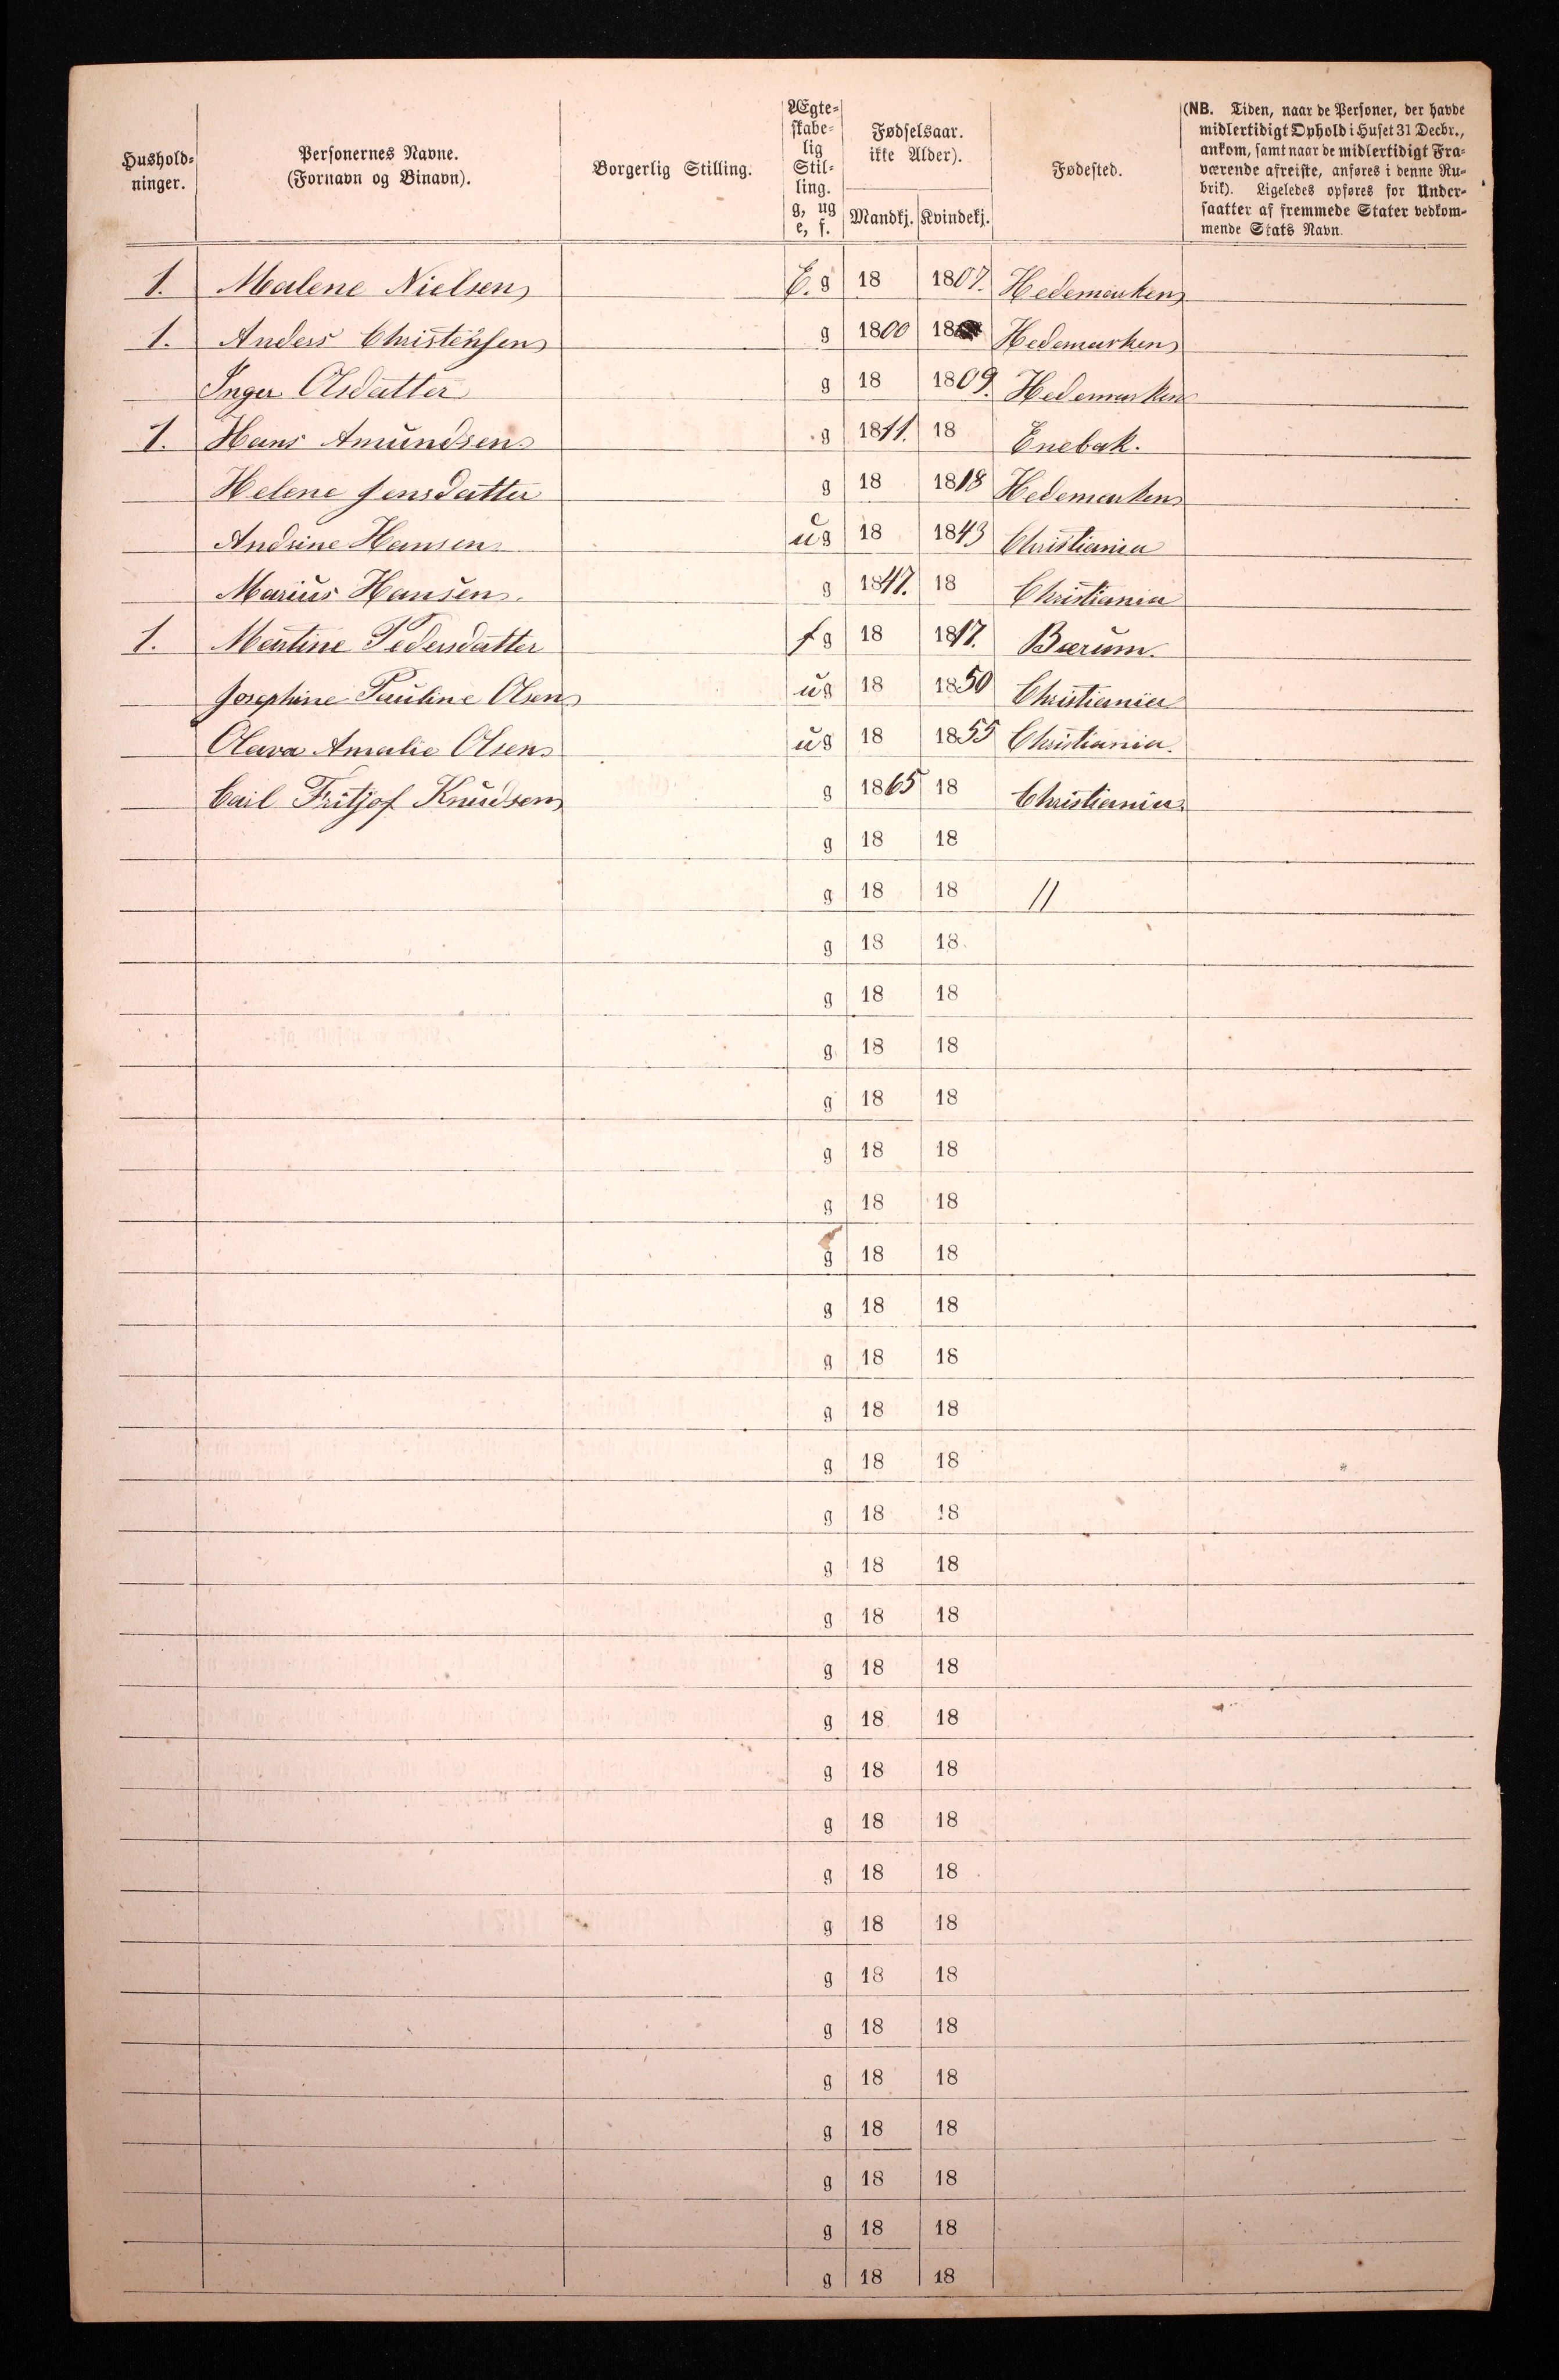 Hushold-
ninger.
Personernes Navne.
(Fornavn og Binavn).
Borgerlig Stilling.
Ægte-
skabe-
lig
Stil-
ling.
g, ug
e, f.
Fødselsaar.
ikke Alder).
Mandkj. Kvindekj.
Fødested.
(NB. Tiden, naar de Personer, der havde
midlertidigt Ophold i Huset 31 Decbr.,
ankom, samt naar de midlertidigt Fra-
værende afreiste, anføres i denne Ru-
brik). Ligeledes opføres for Under-
saatter af fremmede Stater vedkom-
mende Stats Navn.
1. Malene Nielsen E. g 18 1807. Hedemarken
1. Anders Christensen g 1800 18 Hedemarken
Inger Olsdatter g 18 1809. Hedemarken
1. Hans Amundsen. g 1811. 18 Enebak.
Helene Jensdatter g 18 1818 Hedemarken
Andrine Hansen ug 18 1843 Christiania
Marius Hansen. g 1847. 18 Christiania
1. Martine Pedersdatter f g 18 1817. Bærum.
Josephine Pauline Olsen ug 18 1850 Christiania
Olava Amalie Olsen ug 18 1855 Christiania.
Carl Fritjof Knudsen g 1865 18 Christiania.
g 18 18
g 18 18 //
g 18 18
g 18 18
g 18 18
g 18 18
g 18 18
g 18 18
g 18 18
g 18 18
g 18 18
g 18 18
g 18 18
g 18 18
g 18 18
g 18 18
g 18 18
g 18 18
g 18 18
g 18 18
g 18 18
g 18 18
g 18 18
g 18 18
g 18 18
g 18 18
g 18 18
g 18 18
g 18 18